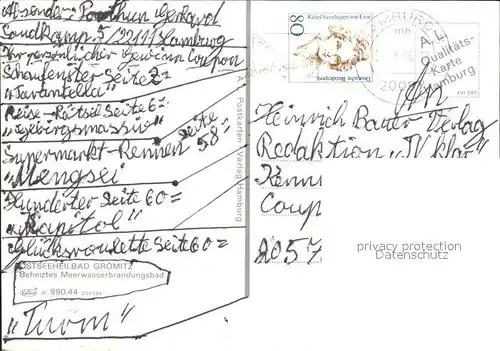 Absender: Gerhard
Sandkamp 5 / 22111 Hamburg
Ihr persönlicher Gewinn Coupon
Schaufenster Seite 2=
"Tarantella"
Reise-Rätsel Seite 6=
Supermarkt-Rennen Seite 58=
"Mengsei"
Hunderter Seite 60=
"Kapitol"
Glücksroulette Seite 60=
OSTSEEHEILBAD GRÖMITZ
Beheiztes Meerwasserbrandungsbad
990.44
"Turm"
Postkarten Verlag Hamburg
80
Rahel Varnhagen von Ense
Deutsche Bundespost
HAMBURG
mh
200
Qualitäts-
Karte
An
Heinrich Bauer Verlag
Redaktion "TV klar"
Coup
privacy protection
Datenschutz